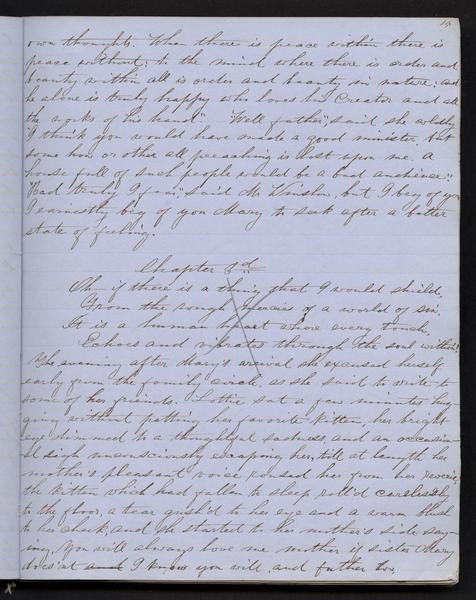 15
own thoughts. When there is peace within there is
peace without; to the mind where there is order and
beauty within all is order and beauty in nature; and
he alone is truly happy who loves his Creator and all
the works of his hand." "Well father", said she coldly
"I think you would have made a good minister, but
some how or other all preaching is lost upon me. A
house full of such people would be a bad
"Bad truly I fear," said Mr Winslow, but I beg of you
I earnestly beg of you Mary to seek after a better
state of feeling.
Chapter 3d
Oh if there is a thing that I would shield,
From the rough mercies of a world of sin,
It is a human heart where every touch,
Echoes and vibrates through the soul within!
The evening after Mary's arrival she excused herself
early from the family circle, as she said to write to
som of her friends. Lottie sat a few minutes
without patting her favorite kitten, her bright
eye dimmed to a thoughtful sadness, and an occasion-
al sigh unconsciously escaping her, till at length her
mother's pleasant voice roused her from her reverie,
the kitten which had fallen to sleep roll'd carelessly
to the floor, a tear gush'd to her eye and a warm flush
to her cheek, and she started to her mother's side say-
ing, You will always love me mother if sister Mary
does'nt I know you will, and father too.
x